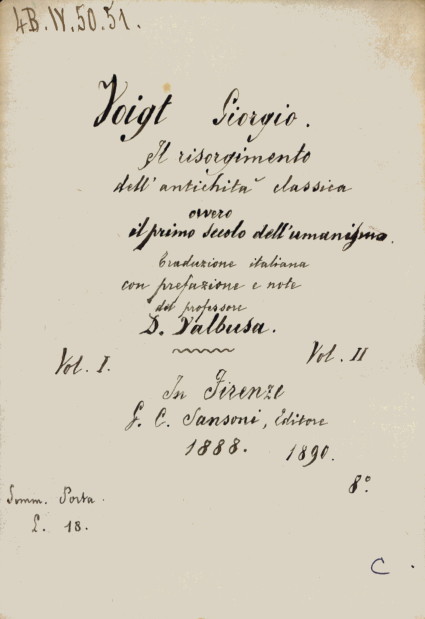 4B.IV.50.51.
Voigt Giorgio.
Il risorgimento
dell'antichità classica
ovvero
il primo secolo dell'umanismo.
Traduzione italiana
con prefazione e note
del professore
D. Valbusa.
Vol. I. Vol. II
In Firenze
G. C. Sansoni, Editore
1888. 1890.
8º.
Somm. Porta.
L. 18.
C